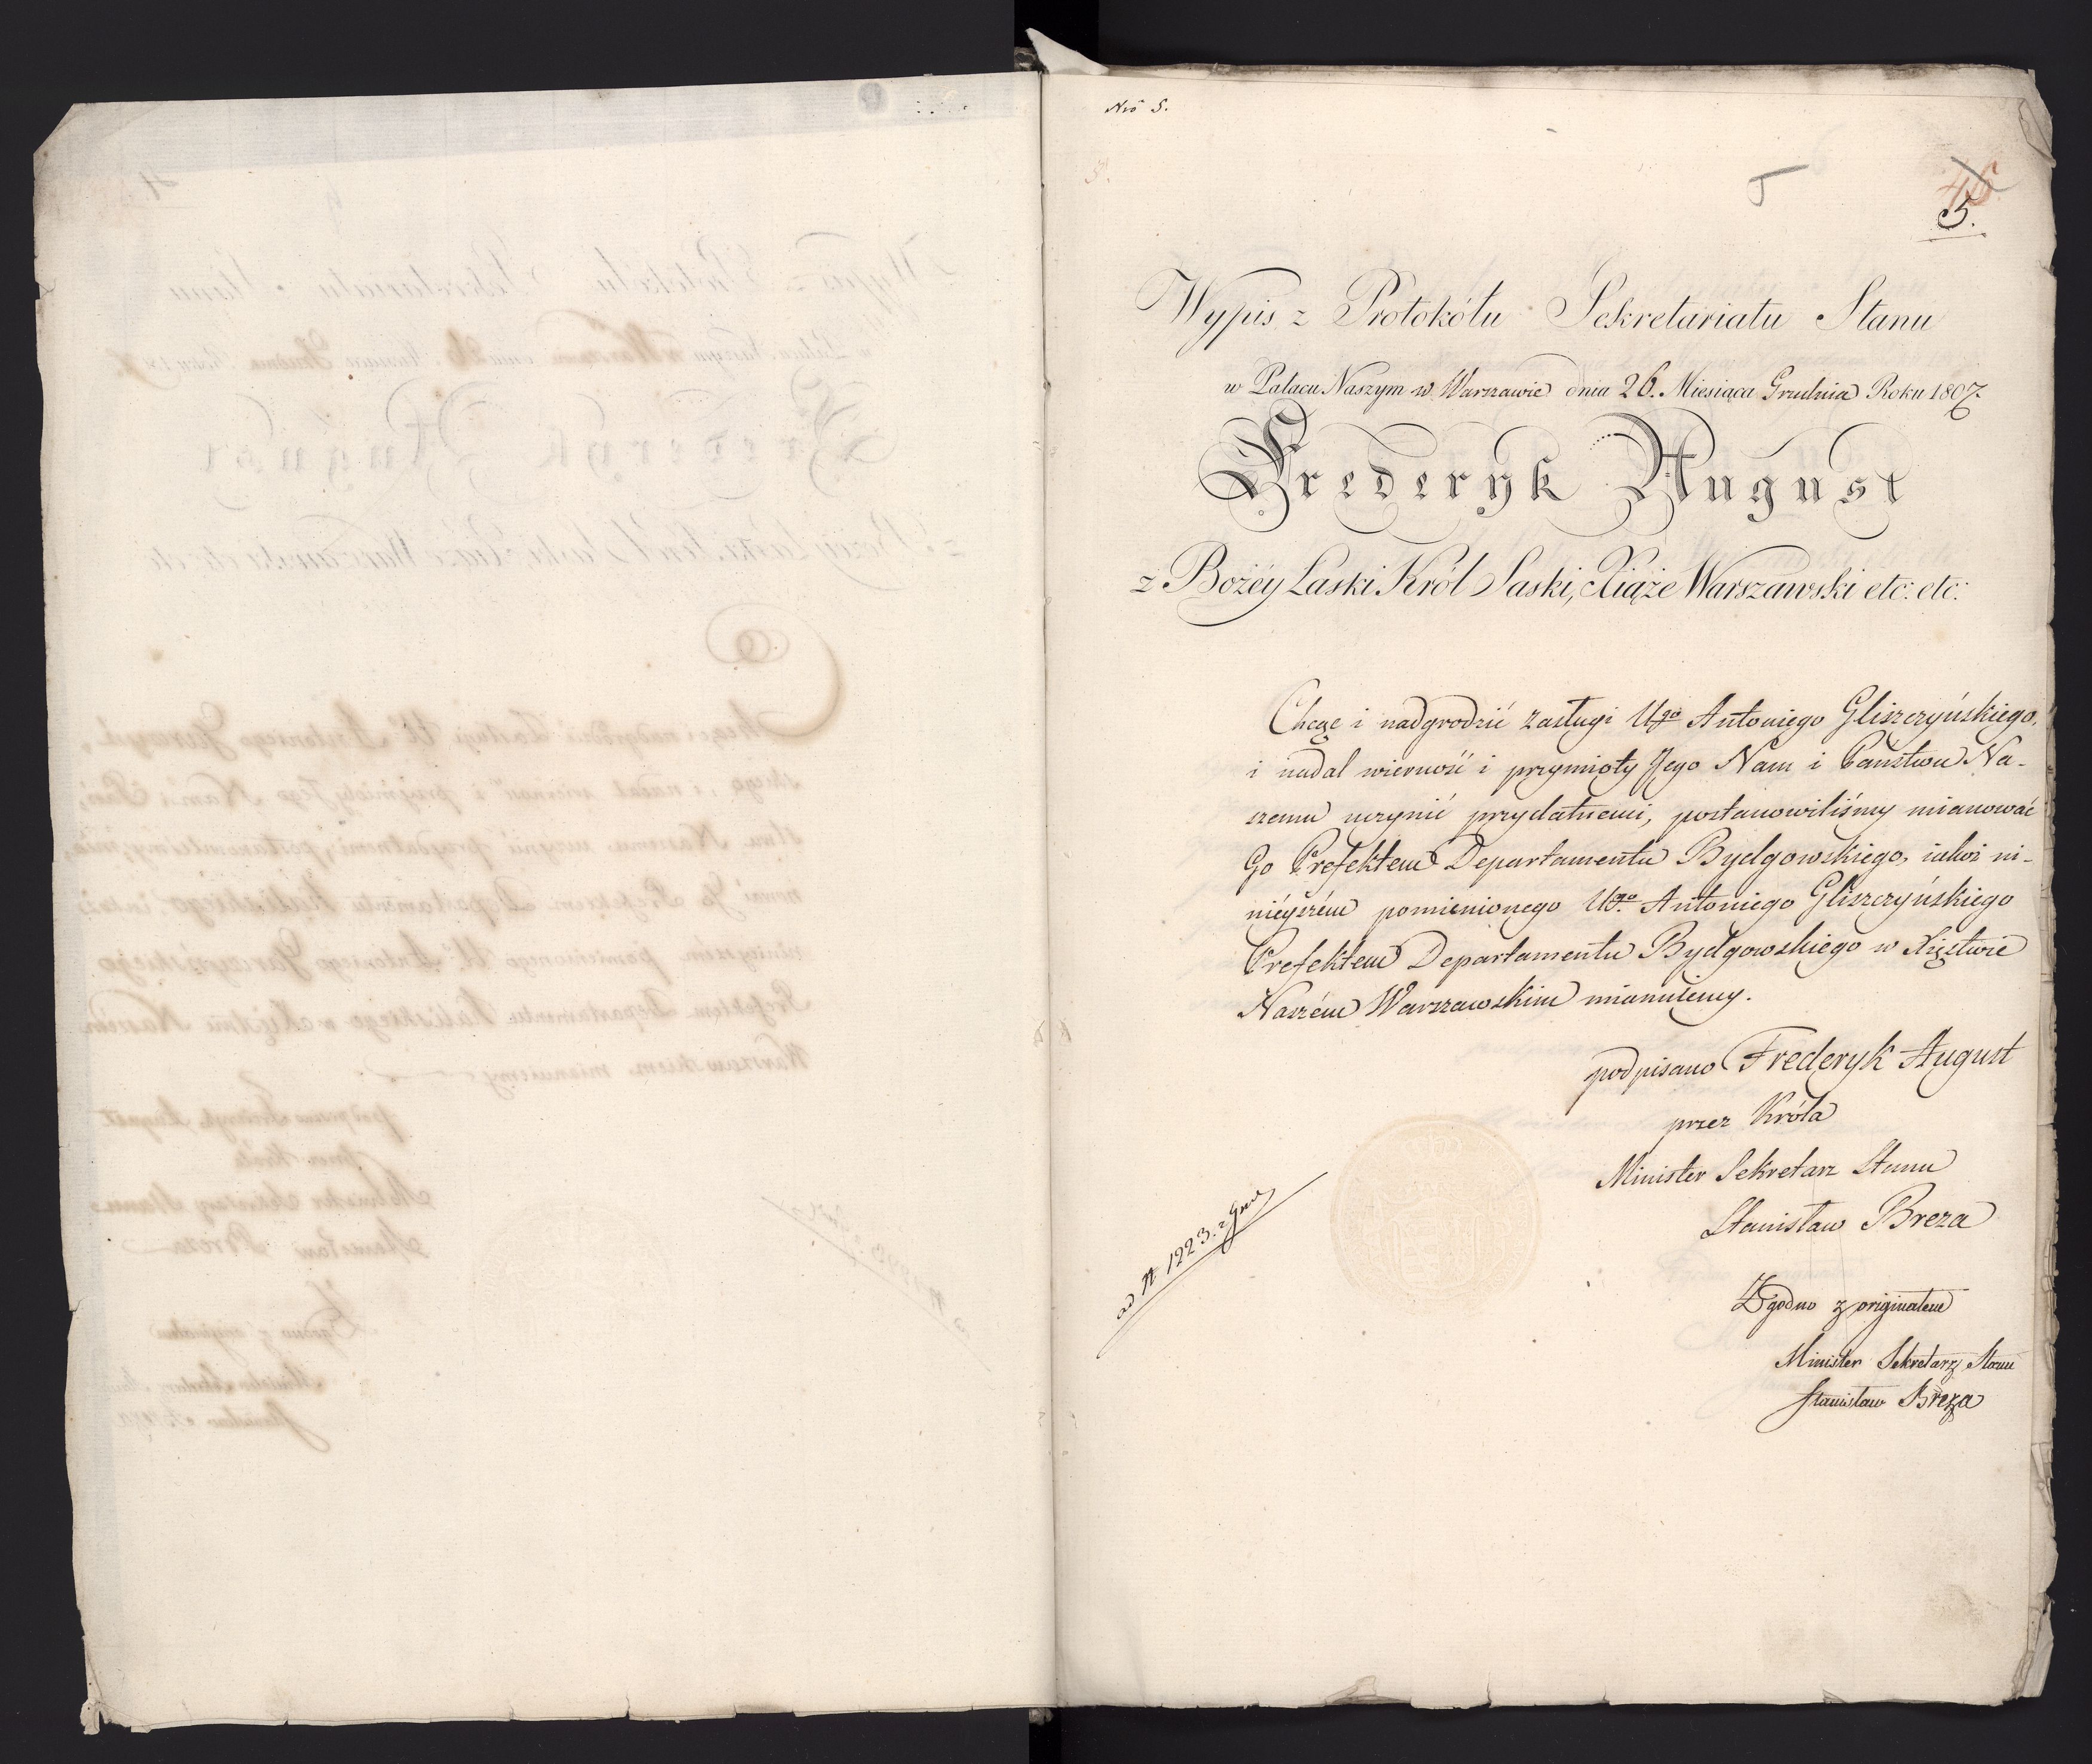 Nro 5.
5
46
5.
Wypis z Protokółu Sekretariatu Stanu
w Pałacu Naszym w Warszawie dnia 26. Miesiąca Grudnia Roku 1807.
Frederyk August
z Bożéy Łaski Król Saski, Xiąże Warszawski etc: etc:
Chcąc i nadgrodzić zasługi Ugo Antoniego Gliszczyńskiego,
i nadal wierność i przymioty Jego Nam i Państwu Na-
szemu uczynić przydatnemi, postanowiliśmy mianować
Go Prefektem Departamentu Bydgowskiego, iakoż ni-
nieyszém pomienionego Ugo Antoniego Gliszczyńskiego
Prefektem Departamentu Bydgowskiego w Xięstwie
Naszém Warszawskim mianuiemy.
podpisano Frederyk August
przez Króla
Minister Sekretarz Stanu
Stanisław Breza
ad N 1223.
Zgodno z originałem
Minister Sekretarz Stanu
Stanisław Breza